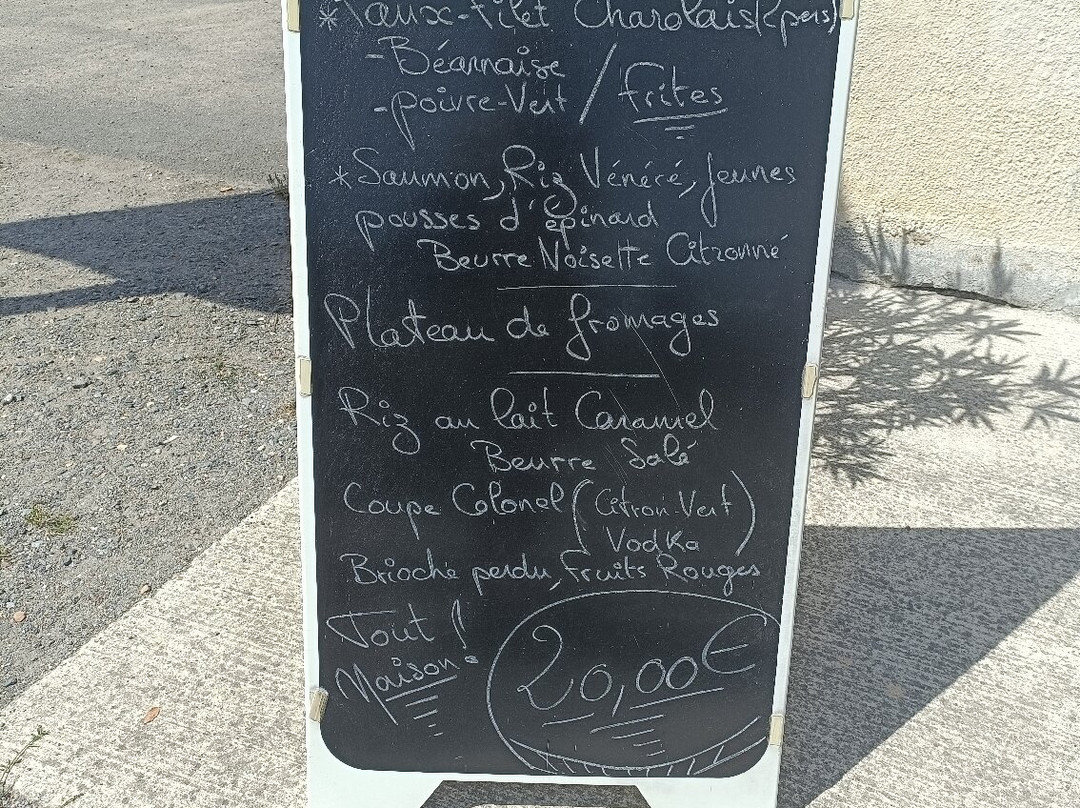 *Faux-Filet Charolais(2pers)
-Béarnaise
-poivre-Vert / frites
*Saumon, Riz Vénéré, jeunes
pousses d'épinard
Beurre Noisette Citronné
Plateau de fromages
Riz au lait Caramel
Beurre Salé
Coupe Colonel (Citron-Vert
Vodka)
Brioche perdu, Fruits Rouges
Tout
Maison!
20,00€